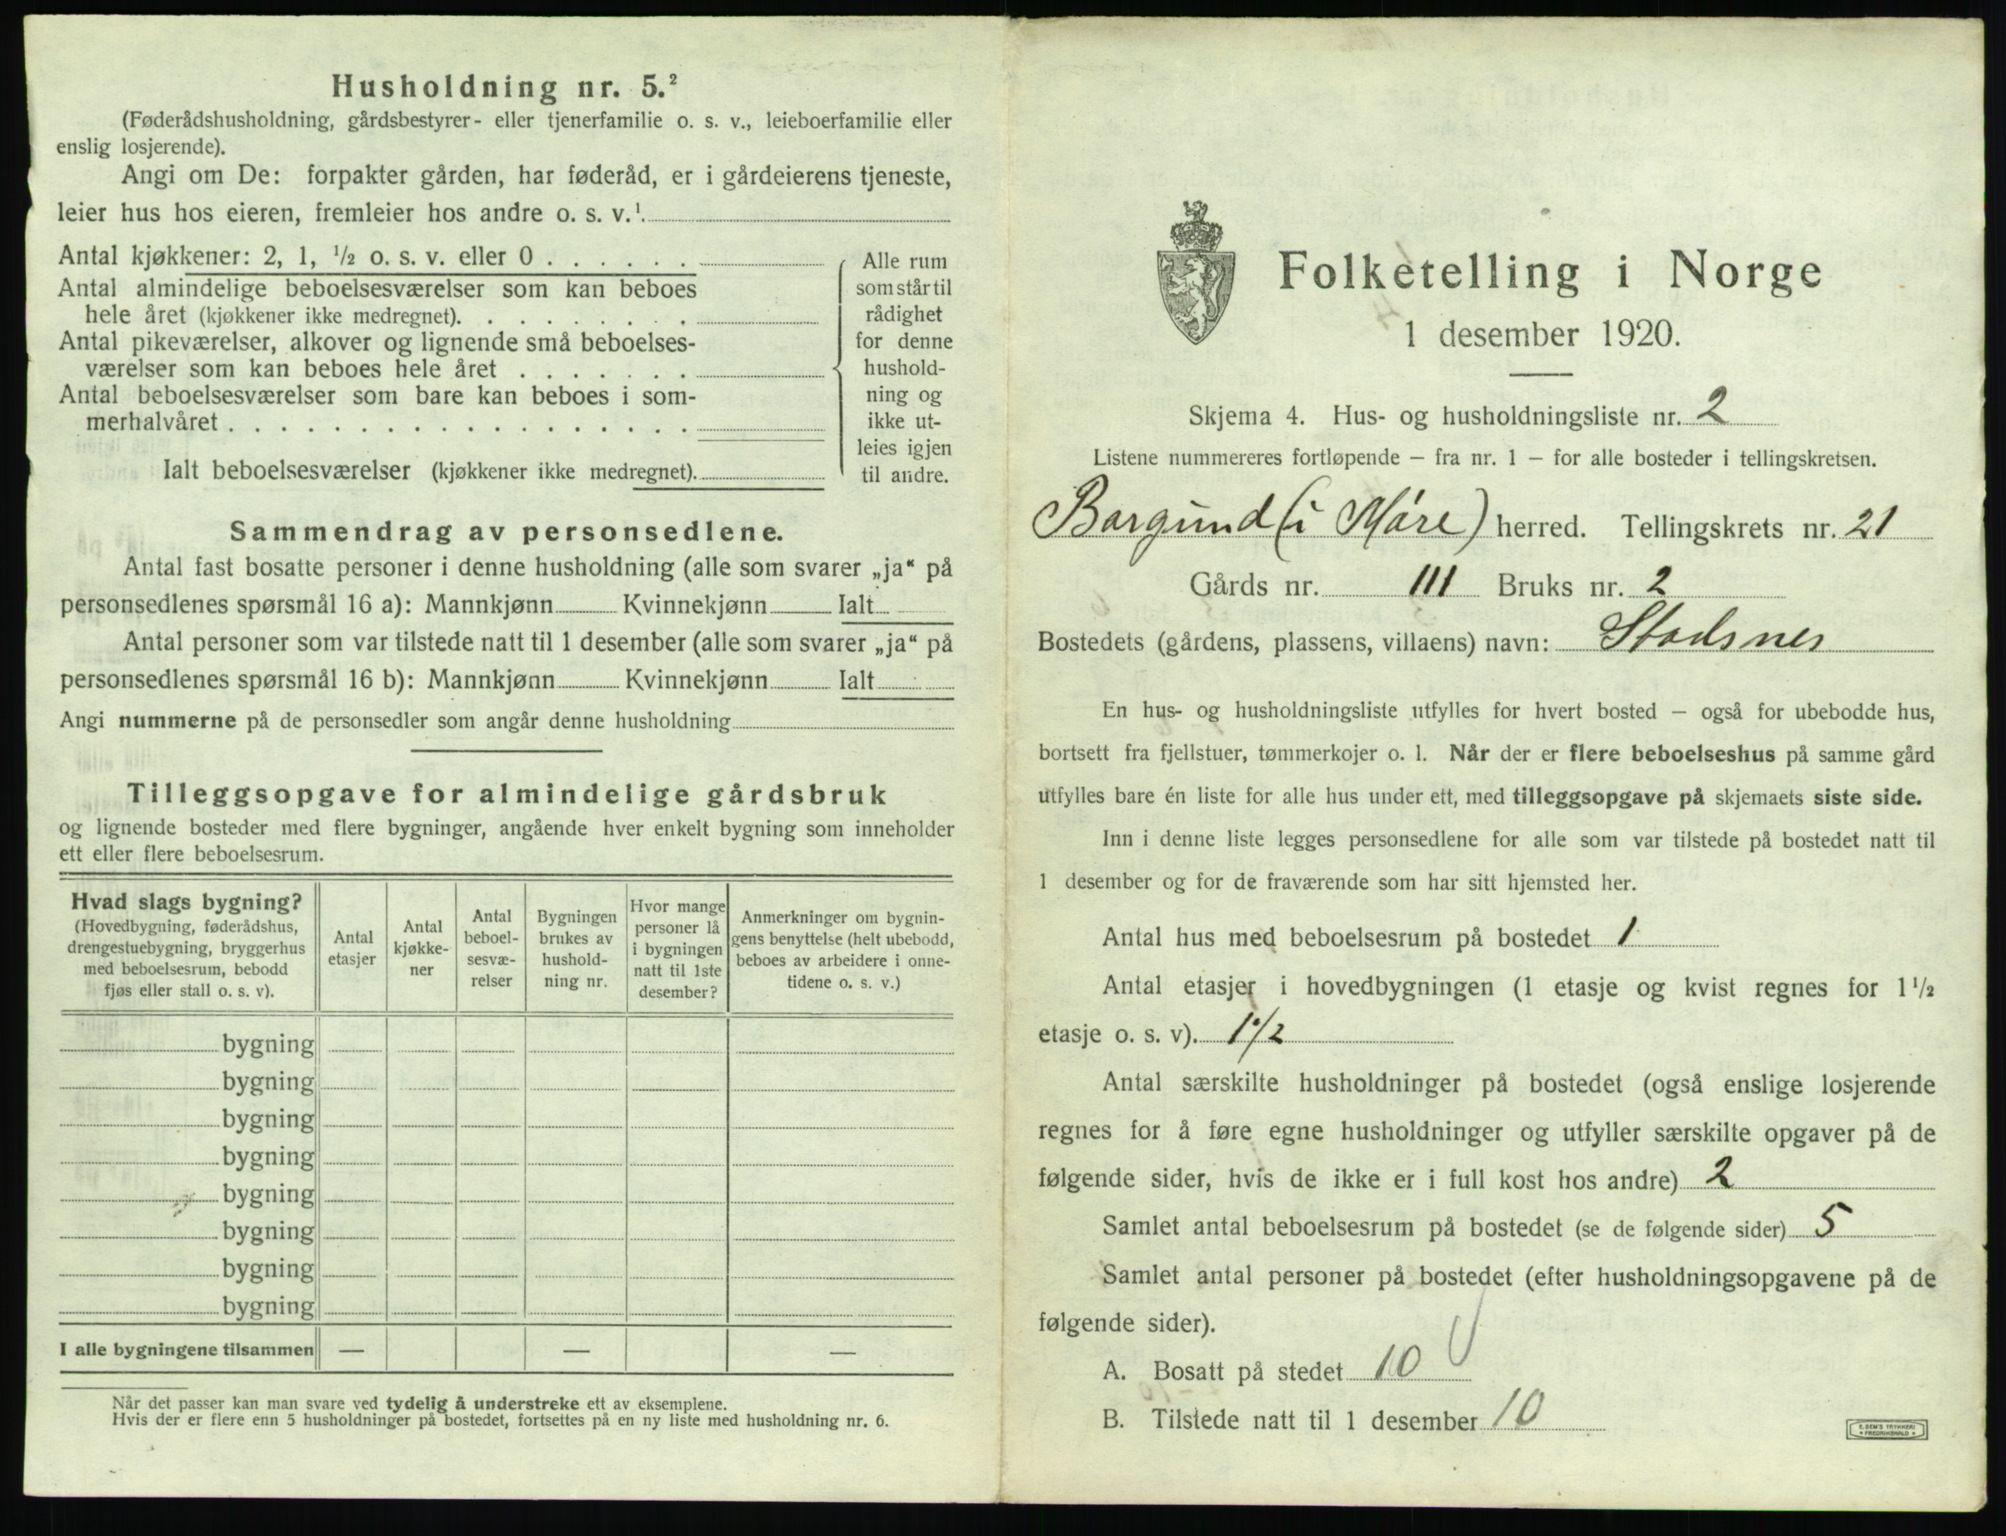 Husholdning nr. 5.²
(Føderådshusholdning, gårdsbestyrer- eller tjenerfamilie o. s. v., leieboerfamilie eller
enslig losjerende).
Angi om De: forpakter gården, har føderåd, er i gårdeierens tjeneste,
leier hus hos eieren, fremleier hos andre o. s. v.¹
Antal kjøkkener: 2, 1, ½ o. s. v. eller 0
Antal almindelige beboelsesværelser som kan beboes
hele året (kjøkkener ikke medregnet).
Antal pikeværelser, alkover og lignende små beboelses-
værelser som kan beboes hele året
Antal beboelsesværelser som bare kan beboes i som-
merhalvåret
Ialt beboelsesværelser (kjøkkener ikke medregnet).
Alle rum
som står til
rådighet
for denne
hushold-
ning og
ikke ut-
leies igjen
til andre.
Sammendrag av personsedlene.
Antal fast bosatte personer i denne husholdning (alle som svarer „ja“ på
personsedlenes spørsmål 16 a): Mannkjønn Kvinnekjønn Ialt
Antal personer som var tilstede natt til 1 desember (alle som svarer „ja“ på
personsedlenes spørsmål 16 b): Mannkjønn Kvinnekjønn Ialt
Angi nummerne på de personsedler som angår denne husholdning
Tilleggsopgave for almindelige gårdsbruk
og lignende bosteder med flere bygninger, angående hver enkelt bygning som inneholder
ett eller flere beboelsesrum.
Hvad slags bygning?
(Hovedbygning, føderådshus,
drengestuebygning, bryggerhus
med beboelsesrum, bebodd
fjøs eller stall o. s. v).
Antal
etasjer
Antal
kjøkke-
ner
Antal
beboel-
sesvæ-
relser
Bygningen
brukes av
hushold-
ning nr.
Hvor mange
personer lå
i bygningen
natt til 1ste
desember?
Anmerkninger om bygnin-
gens benyttelse (helt ubebodd,
beboes av arbeidere i onne-
tidene o. s. v.)
bygning
bygning
bygning
bygning
bygning
bygning
bygning
bygning
I alle bygningene tilsammen — — —
Når det passer kan man svare ved tydelig å understreke ett av eksemplene.
Hvis der er flere enn 5 husholdninger på bostedet, fortsettes på en ny liste med husholdning nr. 6.
Folketelling i Norge
1 desember 1920.
Skjema 4. Hus- og husholdningsliste nr. 2
Listene nummereres fortløpende – fra nr. 1 – for alle bosteder i tellingskretsen.
Borgund (i Møre) herred. Tellingskrets nr. 21
Gårds nr. 111 Bruks nr. 2
Bostedets (gårdens, plassens, villaens) navn: Stadsnes
En hus- og husholdningsliste utfylles for hvert bosted – også for ubebodde hus,
bortsett fra fjellstuer, tømmerkojer o. l. Når der er flere beboelseshus på samme gård
utfylles bare én liste for alle hus under ett, med tilleggsopgave på skjemaets siste side.
Inn i denne liste legges personsedlene for alle som var tilstede på bostedet natt til
1 desember og for de fraværende som har sitt hjemsted her.
Antal hus med beboelsesrum på bostedet 1
Antal etasjer i hovedbygningen (1 etasje og kvist regnes for 1½
etasje o. s. v). 1½
Antal særskilte husholdninger på bostedet (også enslige losjerende
regnes for å føre egne husholdninger og utfyller særskilte opgaver på de
følgende sider, hvis de ikke er i full kost hos andre) 2
Samlet antal beboelsesrum på bostedet (se de følgende sider) 5
Samlet antal personer på bostedet (efter husholdningsopgavene på de
følgende sider).
A. Bosatt på stedet 10
B. Tilstede natt til 1 desember 10
E. SEM'S TRYKKERI
FREDRIKSHALD